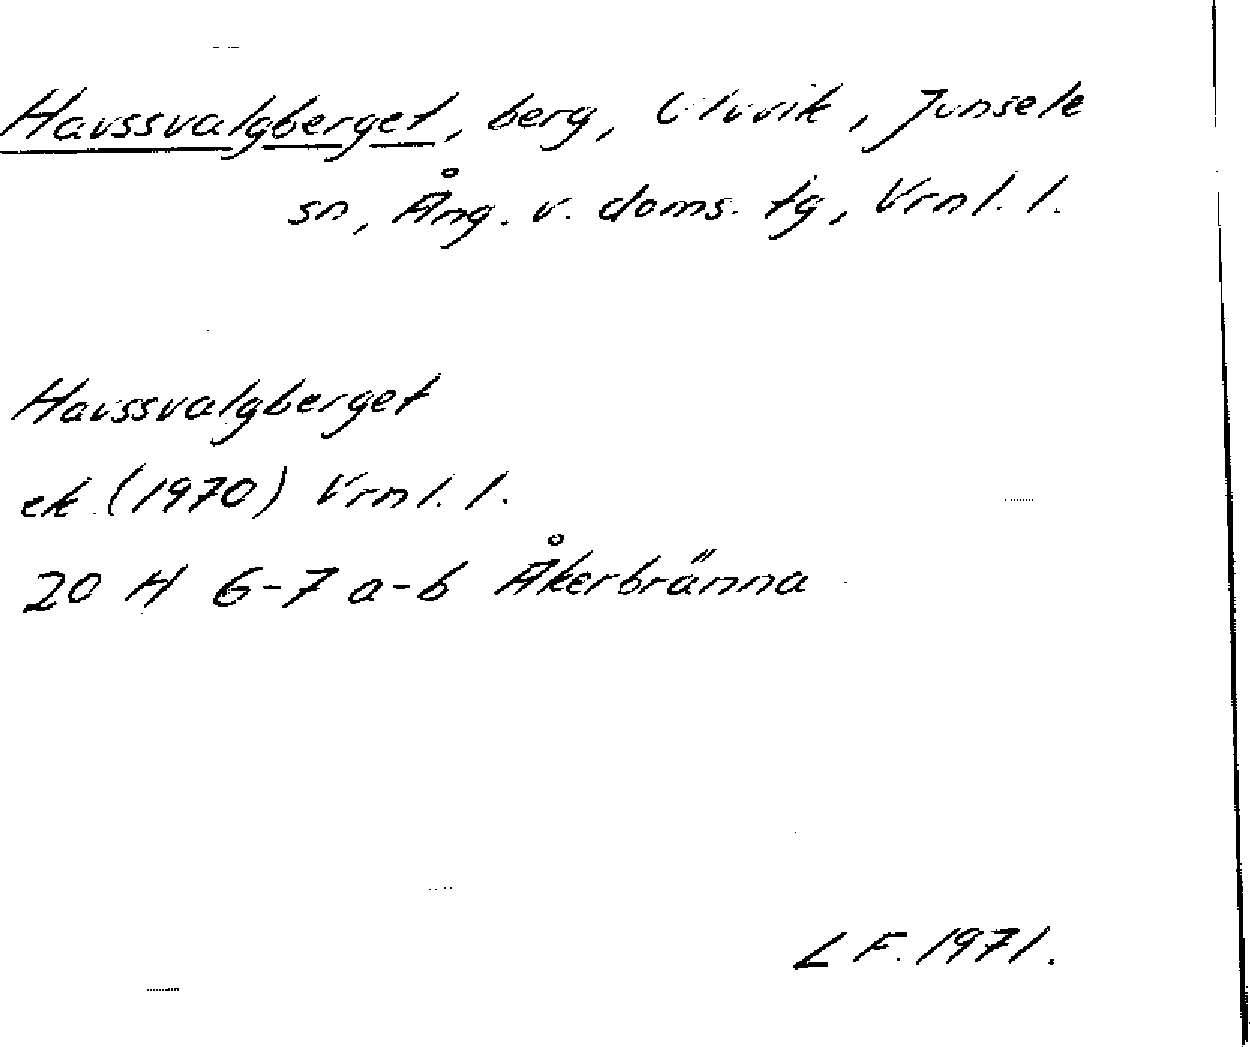 Havssvalgberget, berg, Ulvvik, Junsele
sn, Ång. v. doms. tg, Vrnl. l.
Havssvalgberget
ek (1970) Vrnl. l.
20 H 6-7 a-b Åkerbränna
L F. 1971.